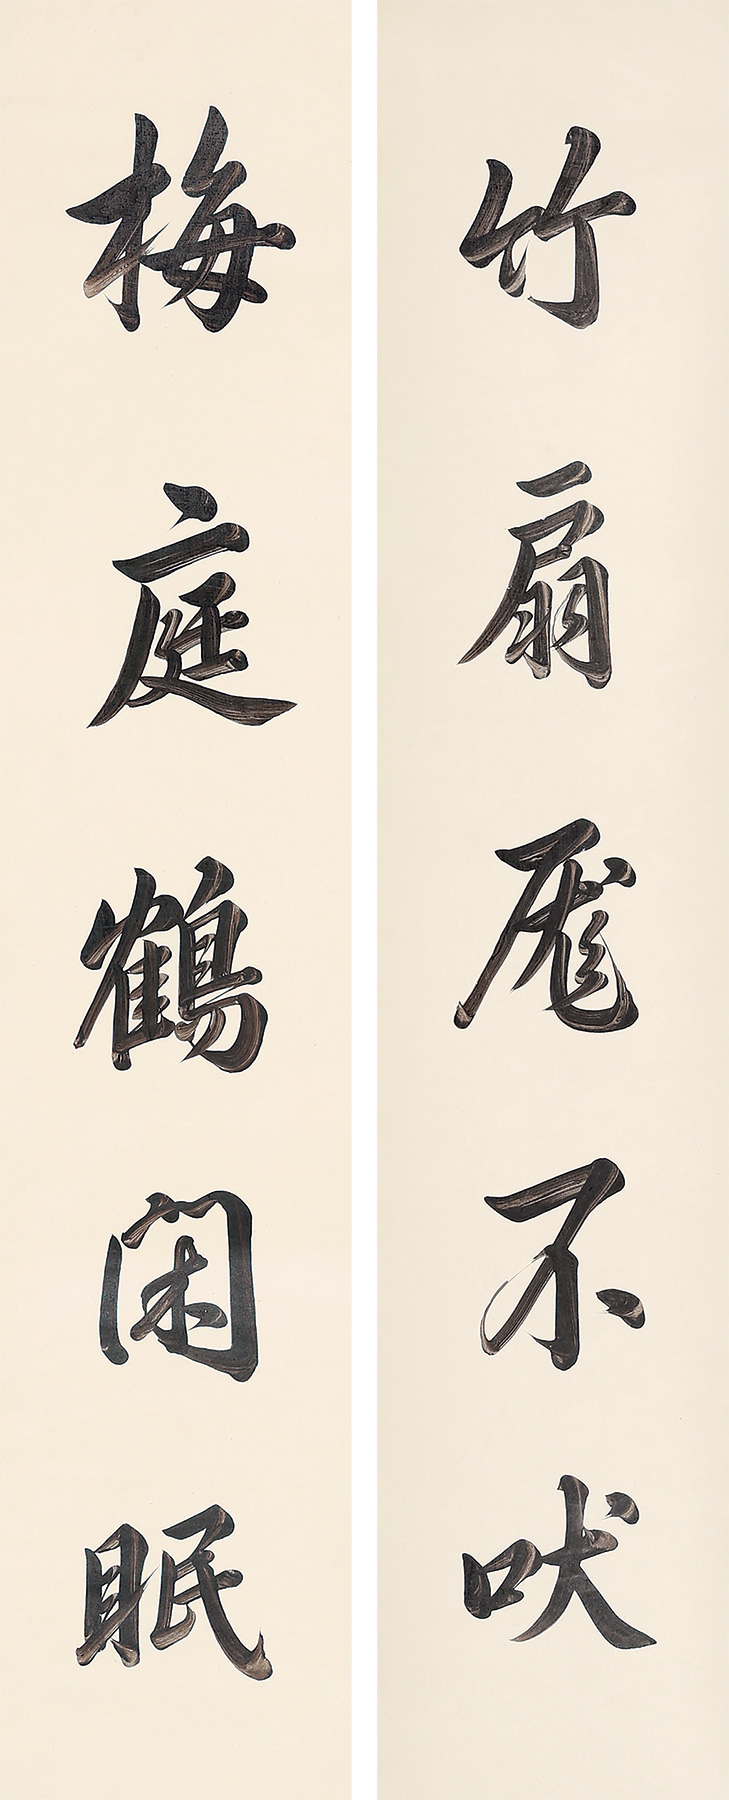 竹扇尨不吠
梅庭鶴閑眠